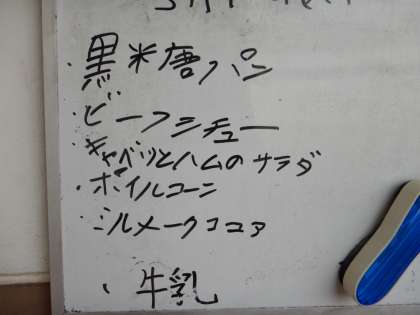 ・黒米唐パン
・ビーフシチュー
・キャベツとハムのサラダ
・ボイルコーン
・ミルメークココア
・牛乳